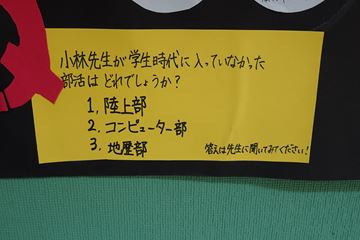 小林先生が学生時代に入っていなかった
部活は どれでしょうか？
1. 陸上部
2. コンピューター部
3. 地歴部
答えは先生に聞いてみてください！